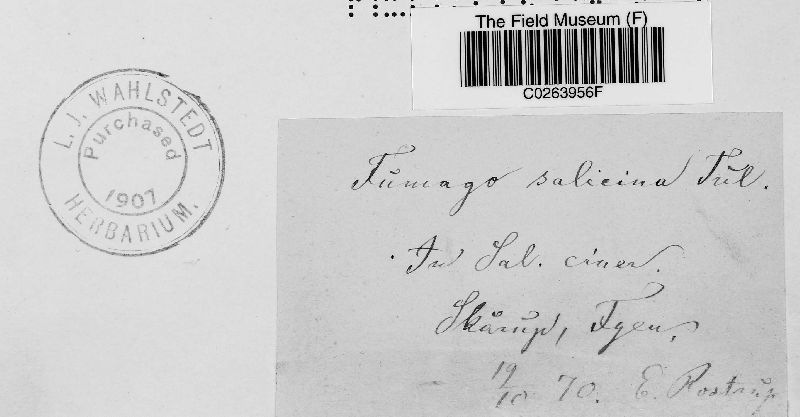 The Field Museum (F)
C0263956F
L. J. WAHLSTEDT
Purchased
1907
HERBARIUM.
Fumago salicina Tul.
In Sal. ciner.
Skårup, Fyen,
19/10 70. E. Rostrup